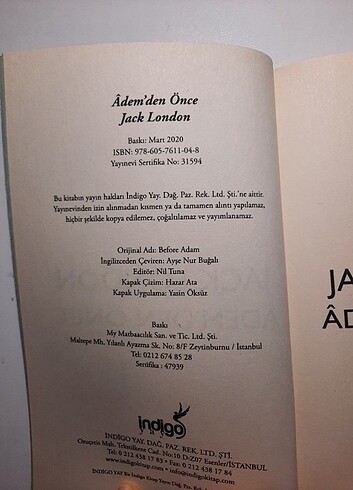 Âdem'den Önce
Jack London
Baskı: Mart 2020
ISBN: 978-605-7611-04-8
Yayınevi Sertifika No: 31594
Bu kitabın yayın hakları İndigo Yay. Dağ. Paz. Rek. Ltd. Şti.'ne aittir.
Yayınevinden izin alınmadan kısmen ya da tamamen alıntı yapılamaz,
hiçbir şekilde kopya edilemez, çoğaltılamaz ve yayımlanamaz.
Orijinal Adı: Before Adam
İngilizceden Çeviren: Ayşe Nur Buğalı
Editör: Nil Tuna
Kapak Çizim: Hazar Ata
Kapak Uygulama: Yasin Öksüz
Baskı
My Matbaacılık San. ve Tic. Ltd. Şti.
Maltepe Mh. Yılanlı Ayazma Sk. No: 8/F Zeytinburnu / İstanbul
Tel: 0212 674 85 28
Sertifika : 47939
indigo
İNDİGO YAY. DAĞ. PAZ. REK. LTD. ŞTİ.
Oruçreis Mah. Tekstilkent Cad. No:10 D-Z07 Esenler/İSTANBUL
Tel: 0 212 438 17 83 • Fax: 0 212 438 17 84
www.indigokitap.com • info@indigokitap.com
JA
ÂD